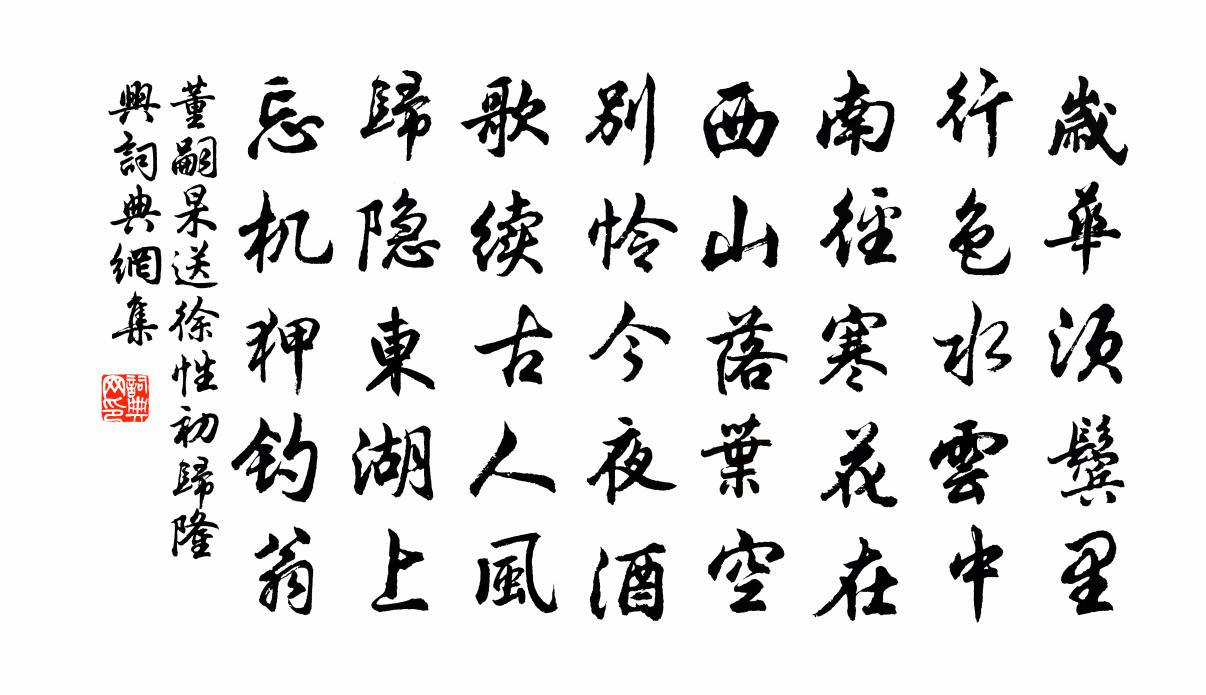 歲華須鬢里
行色水雲中
南徑寒花在
西山落葉空
別怜今夜酒
歌续古人風
歸隐東湖上
忘机狎钓翁
董嗣杲送徐性初歸隆
興詞典網集
詞典网印